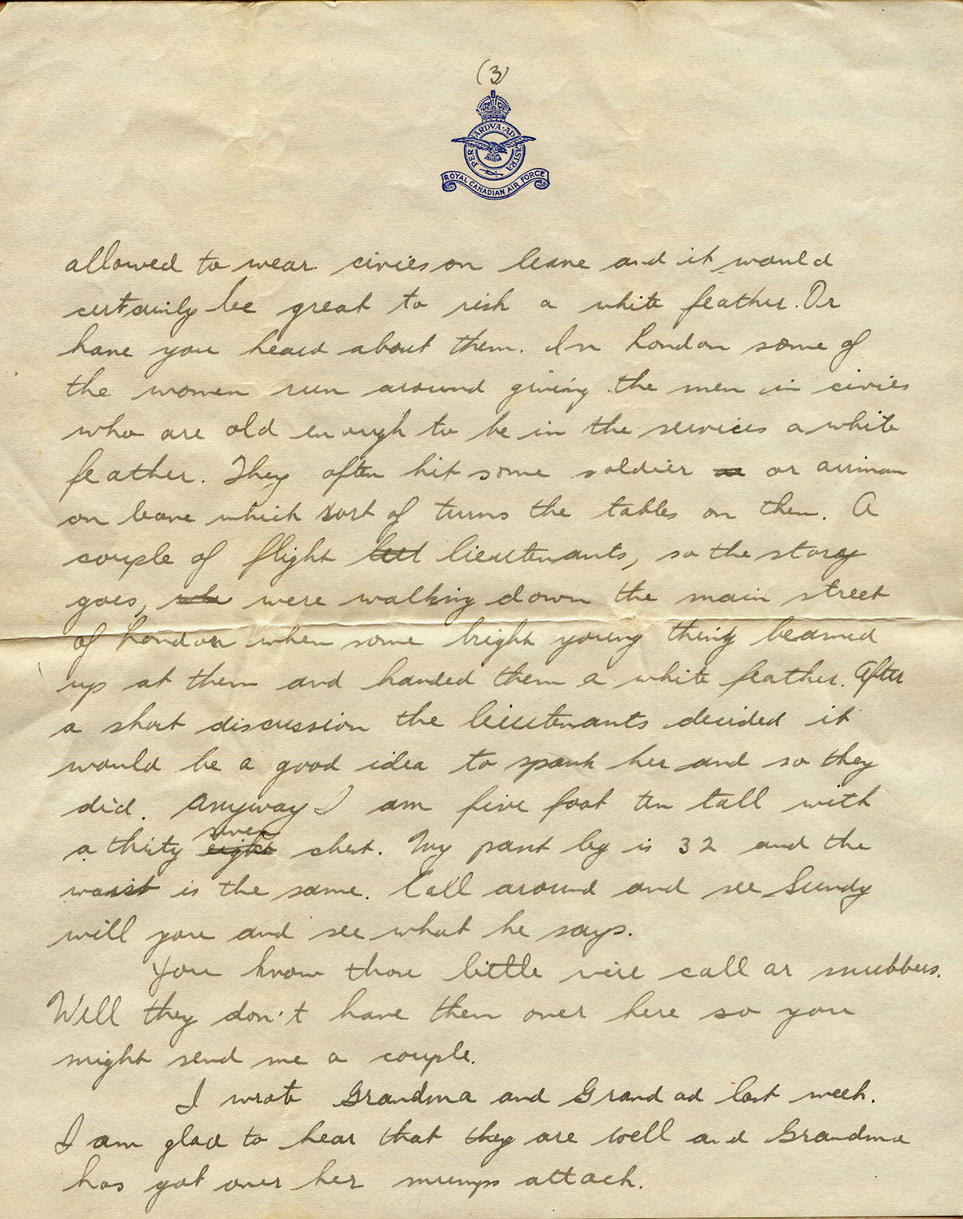 (3)
PER ARDVA AD ASTRA
ROYAL CANADIAN AIR FORCE
allowed to wear civies on leave and it would
certainly be great to risk a white feather. Or
have you heard about them. In London some of
the women run around giving the men in civies
who are old enough to be in the services a white
feather. They often hit some soldier or airman
on leave which sort of turns the tables on them. A
couple of flight lieutenants, so the story
goes, were walking down the main street
of London when some bright young thing beamed
up at them and handed them a white feather. After
a short discussion the lieutenants decided it
would be a good idea to spank her and so they
did. Anyway I am five foot ten tall with
seven
a thirty eight chest. My pant leg is 32 and the
waist is the same. Call around and see Sundy
will you and see what he says.
You know those little wire collar snubbers.
Well they don't have them over here so you
might send me a couple.
I wrote Grandma and Grandad last week.
I am glad to hear that they are well and Grandma
has got over her mumps attack.